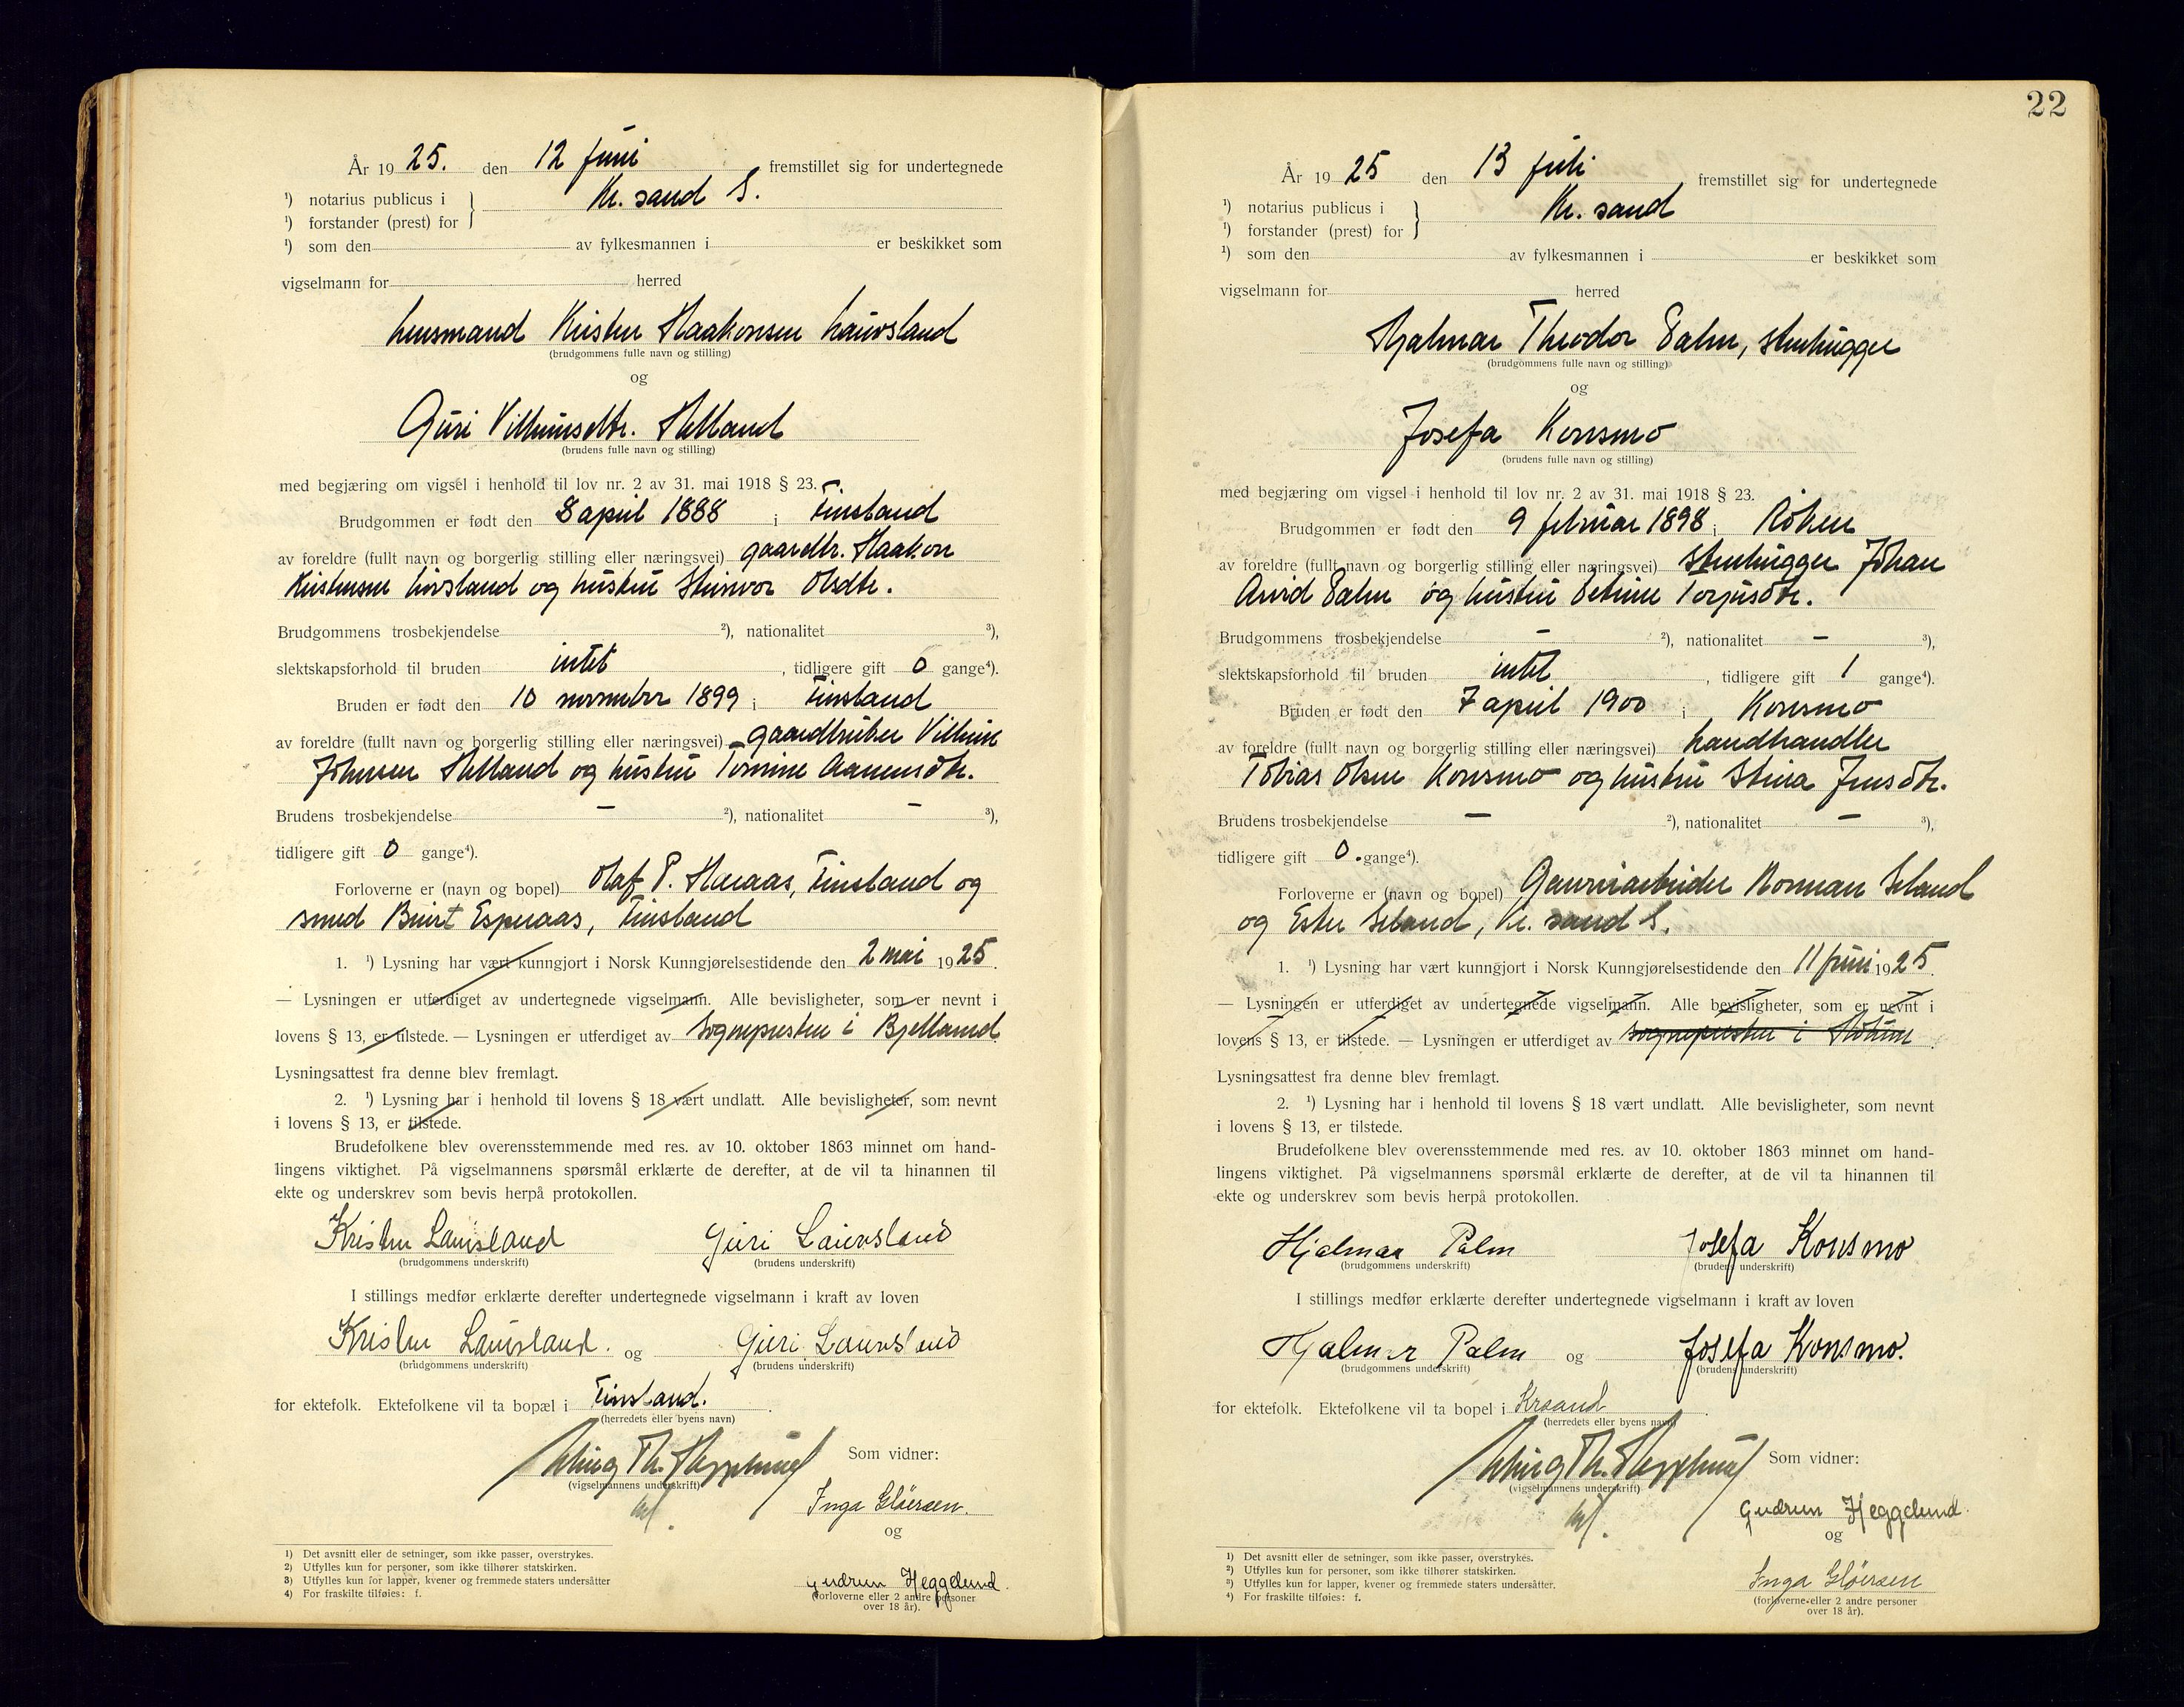 År 1925. den 12 juni fremstillet sig for undertegnede
¹) notarius publicus i } Kr. sand S.
¹) forstander (prest) for
¹) som den av fylkesmannen i er beskikket som
vigselmann for herred
Lensmand Kristen Haakonsen Lauvsland
(brudgommens fulle navn og stilling)
og
Guri Vilhumsdtr. Helland
(brudens fulle navn og stilling)
med begjæring om vigsel i henhold til lov nr. 2 av 31. mai 1918 § 23.
Brudgommen er født den 8 april 1888 i Finsland
av foreldre (fullt navn og borgerlig stilling eller næringsvei) gaardbr. Haakon
Kristensen Lövsland og hustru Steinvor Olsdtr.
Brudgommens trosbekjendelse ²), nationalitet ³),
slektskapsforhold til bruden intet, tidligere gift 0 gange⁴).
Bruden er født den 10 november 1899 i Finsland
av foreldre (fullt navn og borgerlig stilling eller næringsvei) gaardbruker Vilhum
Johnsen Helland og hustru Tomine Aanensdtr.
Brudens trosbekjendelse – ²), nationalitet – ³),
tidligere gift 0 gange⁴).
Forloverne er (navn og bopel) Olaf P. Haraas, Finsland og
smed Beint Esperaas, Finsland
1. ¹) Lysning har vært kunngjort i Norsk Kunngjørelsestidende den 2 mai 1925.
— Lysningen er utferdiget av undertegnede vigselmann. Alle bevisligheter, som er nevnt i
lovens § 13, er tilstede. — Lysningen er utferdiget av sognepresten i Bjelland
Lysningsattest fra denne blev fremlagt.
2. ¹) Lysning har i henhold til lovens § 18 vært undlatt. Alle bevisligheter, som nevnt
i lovens § 13, er tilstede.
Brudefolkene blev overensstemmende med res. av 10. oktober 1863 minnet om hand-
lingens viktighet. På vigselmannens spørsmål erklærte de derefter, at de vil ta hinannen til
ekte og underskrev som bevis herpå protokollen.
Kristen Lauvsland Guri Lauvsland
(brudgommens underskrift) (brudens underskrift)
I stillings medfør erklærte derefter undertegnede vigselmann i kraft av loven
Kristen Lauvsland. og Guri Lauvsland
(brudgommens underskrift) (brudens underskrift)
for ektefolk. Ektefolkene vil ta bopæl i Finsland.
(herredets eller byens navn)
Th. Heggelund Som vidner:
(vigselmannens underskrift)
Inga Gløersen.
og
Gudrun Heggelund.
(forloverne eller 2 andre personer
over 18 år).
1) Det avsnitt eller de setninger, som ikke passer, overstrykes.
2) Utfylles kun for personer, som ikke tilhører statskirken.
3) Utfylles kun for lapper, kvener og fremmede staters undersåtter
4) For fraskilte tilføies: f.
22
År 1925 den 13 juli fremstillet sig for undertegnede
¹) notarius publicus i } Kr. sand
¹) forstander (prest) for
¹) som den av fylkesmannen i er beskikket som
vigselmann for herred
Hjalmar Theodor Palm, stenhugger
(brudgommens fulle navn og stilling)
og
Josefa Konsmo
(brudens fulle navn og stilling)
med begjæring om vigsel i henhold til lov nr. 2 av 31. mai 1918 § 23.
Brudgommen er født den 9 februar 1898 i Röken
av foreldre (fullt navn og borgerlig stilling eller næringsvei) Stenhugger Johan
Arvid Palm og hustru Petrine Torjusdtr.
Brudgommens trosbekjendelse – ²), nationalitet – ³),
slektskapsforhold til bruden intet, tidligere gift 1 gange⁴).
Bruden er født den 7 april 1900 i Konsmo
av foreldre (fullt navn og borgerlig stilling eller næringsvei) Landhandler
Tobias Olsen Konsmo og hustru Stina Jensdtr.
Brudens trosbekjendelse – ²), nationalitet – ³),
tidligere gift 0. gange⁴).
Forloverne er (navn og bopel) Garveriarbeider Norman Seland
og Ester Seland, Kr. sand S.
1. ¹) Lysning har vært kunngjort i Norsk Kunngjørelsestidende den 11 juni 1925.
— Lysningen er utferdiget av undertegnede vigselmann. Alle bevisligheter, som er nevnt i
lovens § 13, er tilstede. — Lysningen er utferdiget av sognepresten i
Lysningsattest fra denne blev fremlagt.
2. ¹) Lysning har i henhold til lovens § 18 vært undlatt. Alle bevisligheter, som nevnt
i lovens § 13, er tilstede.
Brudefolkene blev overensstemmende med res. av 10. oktober 1863 minnet om hand-
lingens viktighet. På vigselmannens spørsmål erklærte de derefter, at de vil ta hinannen til
ekte og underskrev som bevis herpå protokollen.
Hjalmar Palm Josefa Konsmo
(brudgommens underskrift) (brudens underskrift)
I stillings medfør erklærte derefter undertegnede vigselmann i kraft av loven
Hjalmar Palm og Josefa Konsmo.
(brudgommens underskrift) (brudens underskrift)
for ektefolk. Ektefolkene vil ta bopel i Krsand
(herredets eller byens navn)
Th. Heggelund Som vidner:
(vigselmannens underskrift)
Gudrun Heggelund.
og
Inga Gløersen
(forloverne eller 2 andre personer
over 18 år).
¹) Det avsnitt eller de setninger, som ikke passer, overstrykes.
²) Utfylles kun for personer, som ikke tilhører statskirken.
³) Utfylles kun for lapper, kvener og fremmede staters undersåtter.
⁴) For fraskilte tilføies: f.